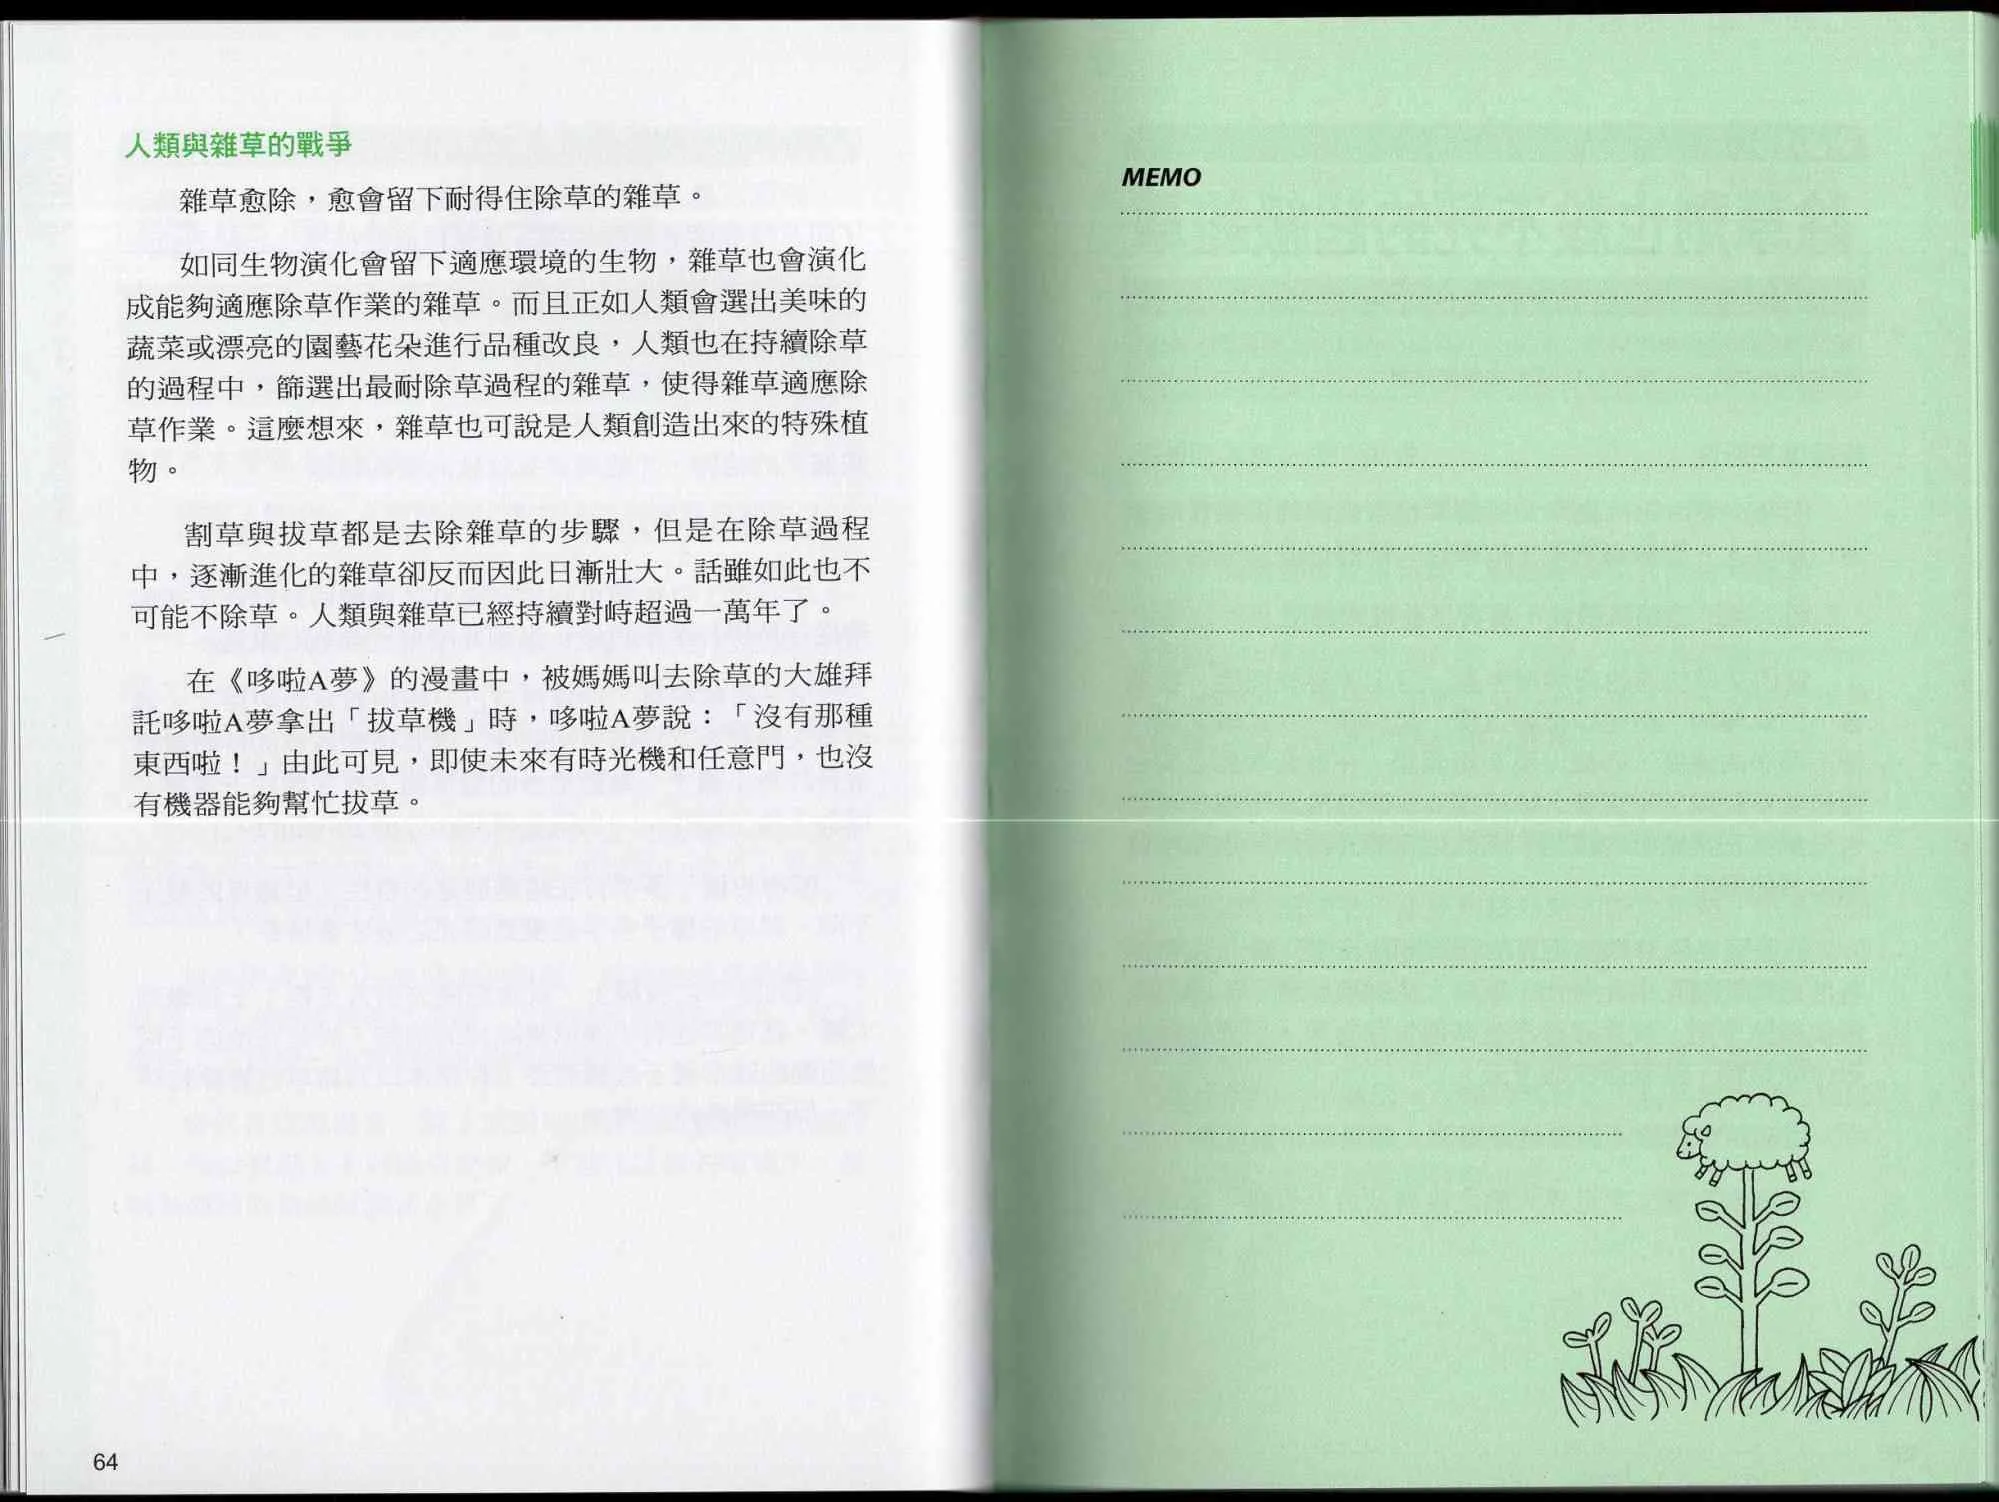 人類與雜草的戰爭
雜草愈除，愈會留下耐得住除草的雜草。
如同生物演化會留下適應環境的生物，雜草也會演化
成能夠適應除草作業的雜草。而且正如人類會選出美味的
蔬菜或漂亮的園藝花朵進行品種改良，人類也在持續除草
的過程中，篩選出最耐除草過程的雜草，使得雜草適應除
草作業。這麼想來，雜草也可說是人類創造出來的特殊植
物。
割草與拔草都是去除雜草的步驟，但是在除草過程
中，逐漸進化的雜草卻反而因此日漸壯大。話雖如此也不
可能不除草。人類與雜草已經持續對峙超過一萬年了。
在《哆啦A夢》的漫畫中，被媽媽叫去除草的大雄拜
託哆啦A夢拿出「拔草機」時，哆啦A夢說：「沒有那種
東西啦！」由此可見，即使未來有時光機和任意門，也沒
有機器能夠幫忙拔草。
64
MEMO